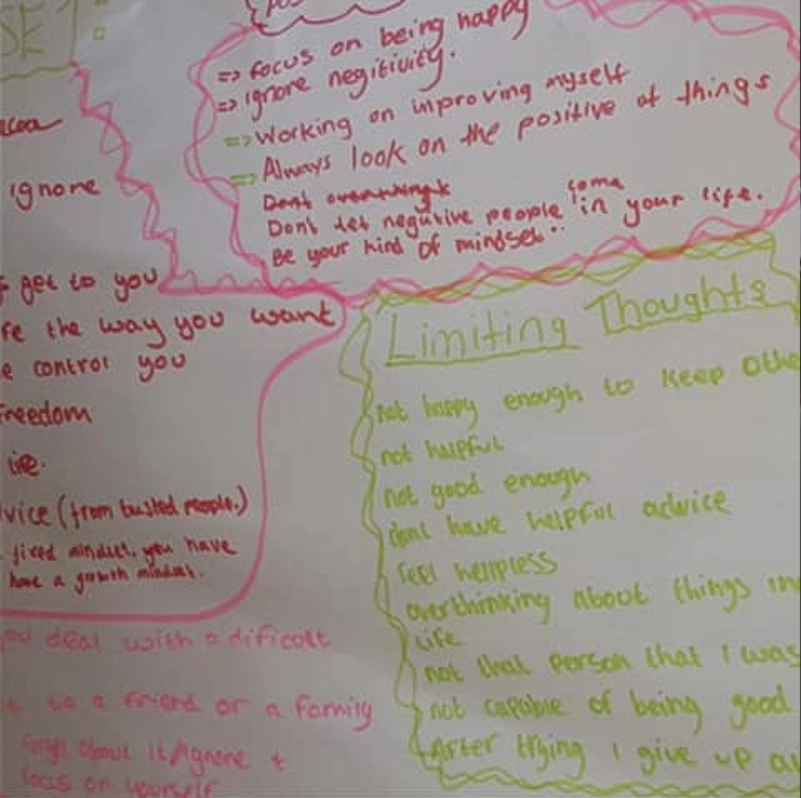 SE1:
=> focus on being happy
=> ignore negitivity.
=> Working on improving myself
=> Always look on the positive of things
Dont overthingk
Dont let negative people come in your life.
Be your kind of mindset..
ignore
get to you
fe the way you want
e control you
freedom
life.
vice (from trusted people.)
fixed mindset, you have
have a growth mindset.
you deal with a dificolt
to a friend or a family
forgt about it/Ignore +
focus on yourself
Limiting Thoughts
not happy enough to keep othe
not helpful
not good enough
dont have helpful advice
feel helpless
overthinking about things in
life
not that person that I was
not capable of being good
After trying I give up